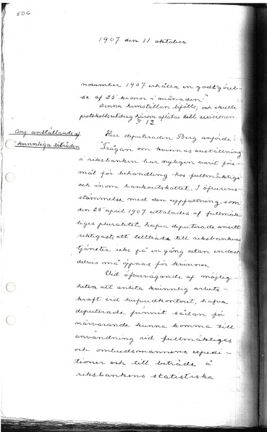 506
1907 den 11 oktober
november 1907 erhålla en godtgörel-
se af 25 kronor i månaden.
Denna hemställan bifölls, och skulle
protokollsutdrag härom aflåtas till revisionen
§ 12
Ang. anställande af
kvinnliga biträden
Herr deputeraden Berg anförde:
Frågan om kvinnas anställning
i riksbanken har nyligen varit före-
mål för behandling hos fullmäktige
och inom bankoutskottet. I öfverens-
stämmelse med den uppfattning som
den 25 april 1907 uttalades af fullmäk-
tiges pluralitet, hafva deputerade ansett
riktigast, att tillträde till riksbankens
tjänster icke på en gång utan endast
delvis må öppnas för kvinnor.
Vid öfvervägande af möjlig-
heten att anlita kvinnlig arbets-
kraft vid hufvudkontoret, hafva
deputerade funnit sådan för
närvarande kunna komma till
användning vid fullmäktiges
och ombudsmannens expedi-
tioner och till biträde å
riksbankens statistiska